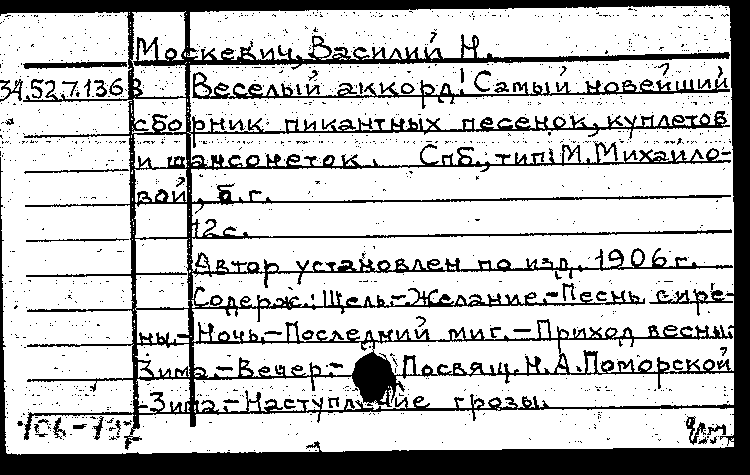 Москевич, Василий Н.
34.52.7.136 В Веселый аккорд! Самый новейший
сборник пикантных песенок, куплетов
и шансонеток. Спб., тип. М. Михайло-
вой, б.г.
12с.
Автор установлен по изд. 1906г.
Содерж.: Щель.-Желание.-Песнь сире-
ны.-Ночь.-Последний миг.-Приход весны.
Зима.-Вечер.- Посвящ. Н.А. Поморской
-Зима.-Наступление грозы.
106-197